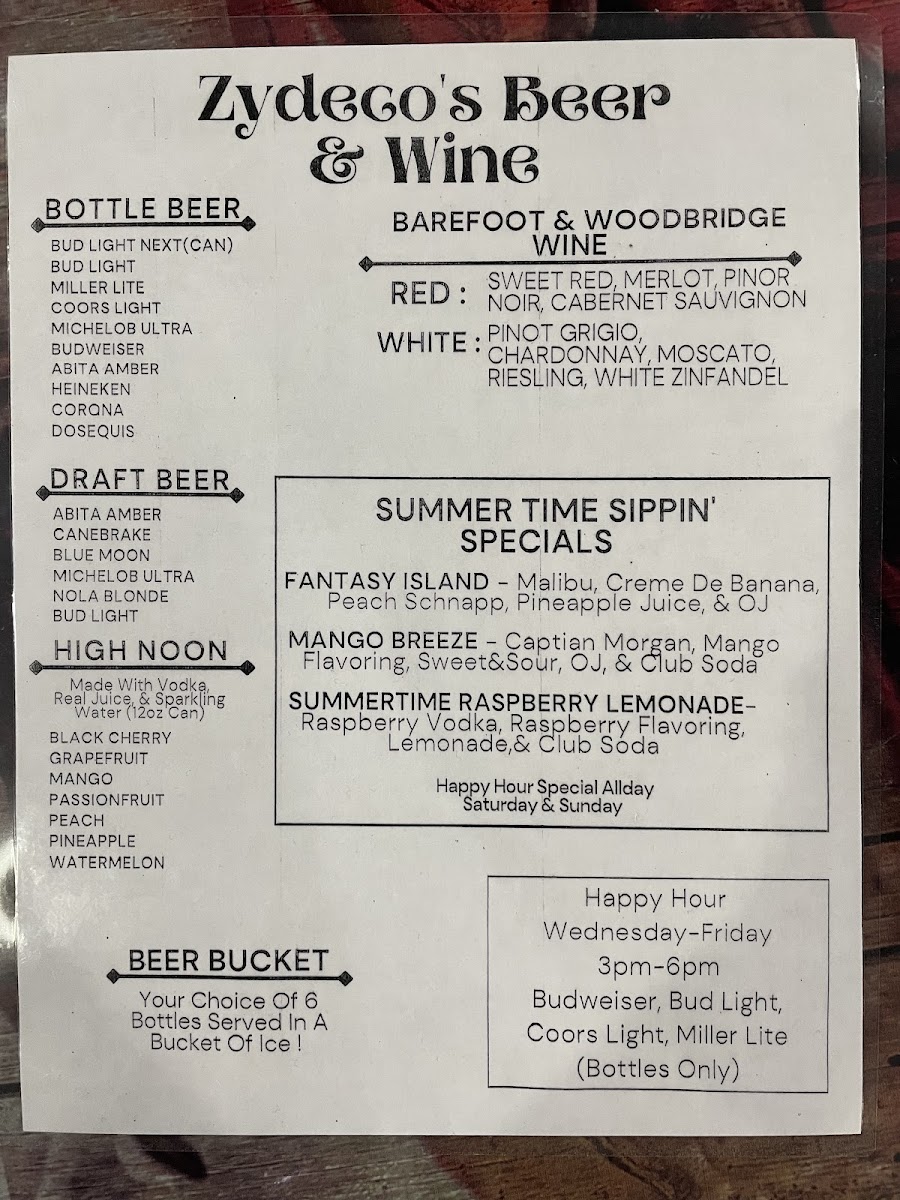 Zydeco's Beer
& Wine
BOTTLE BEER
BUD LIGHT NEXT(CAN)
BUD LIGHT
MILLER LITE
COORS LIGHT
MICHELOB ULTRA
BUDWEISER
ABITA AMBER
HEINEKEN
CORONA
DOSEQUIS
DRAFT BEER
ABITA AMBER
CANEBRAKE
BLUE MOON
MICHELOB ULTRA
NOLA BLONDE
BUD LIGHT
HIGH NOON
Made With Vodka,
Real Juice, & Sparkling
Water (12oz Can)
BLACK CHERRY
GRAPEFRUIT
MANGO
PASSIONFRUIT
PEACH
PINEAPPLE
WATERMELON
BEER BUCKET
Your Choice Of 6
Bottles Served In A
Bucket Of Ice !
BAREFOOT & WOODBRIDGE
WINE
RED : SWEET RED, MERLOT, PINOR
NOIR, CABERNET SAUVIGNON
WHITE : PINOT GRIGIO,
CHARDONNAY, MOSCATO,
RIESLING, WHITE ZINFANDEL
SUMMER TIME SIPPIN'
SPECIALS
FANTASY ISLAND - Malibu, Creme De Banana,
Peach Schnapp, Pineapple Juice, & OJ
MANGO BREEZE - Captian Morgan, Mango
Flavoring, Sweet&Sour, OJ, & Club Soda
SUMMERTIME RASPBERRY LEMONADE-
Raspberry Vodka, Raspberry Flavoring,
Lemonade,& Club Soda
Happy Hour Special Allday
Saturday & Sunday
Happy Hour
Wednesday-Friday
3pm-6pm
Budweiser, Bud Light,
Coors Light, Miller Lite
(Bottles Only)